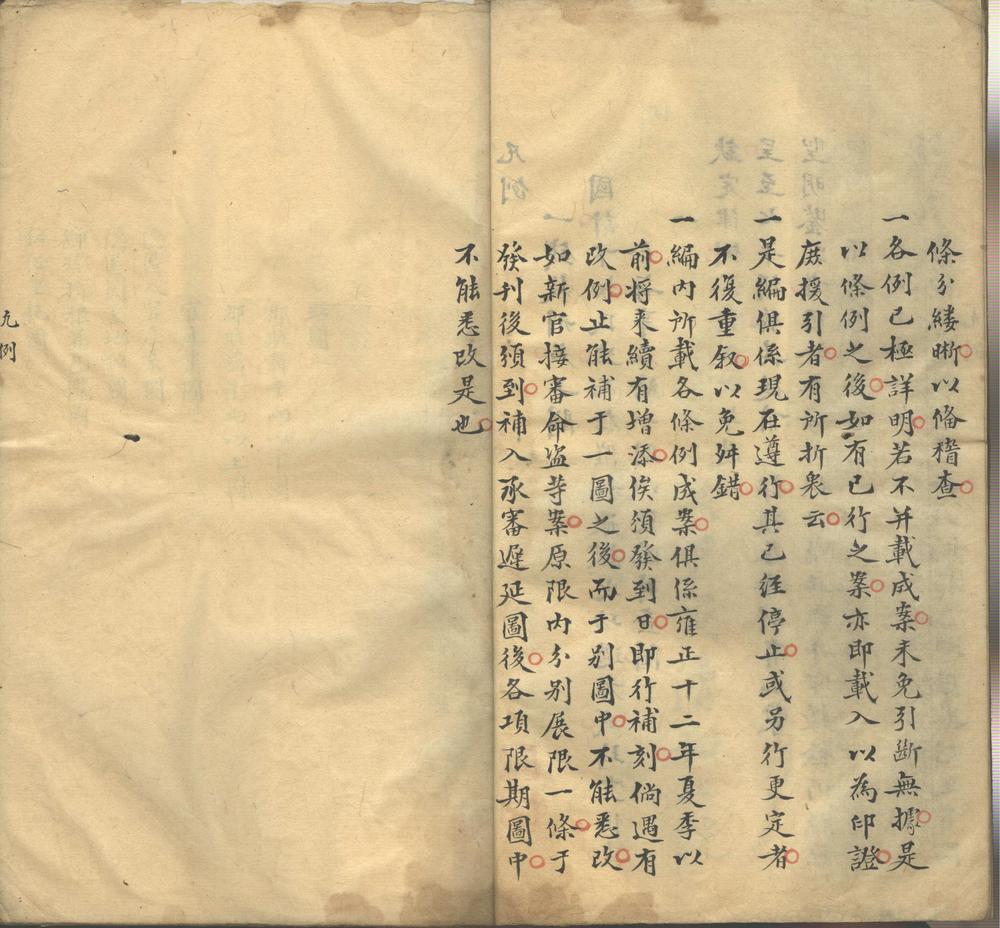 條分縷晰以俻稽查
一各例已極詳明若不并載成案未免引斷無據是
以條例之後如有已行之案亦即載入以為印證
庶援引者有所折衷云
一是編俱係現在遵行其已經停止或另行更定者
不復重叙以免舛錯
一編內所載各條例成案俱係雍正十二年夏季以
前將来續有增添俟須發到日即行補刻倘遇有
改例止能補于一圖之後而于别圖中不能悉改
如新官接審命盗等案原限內分别展限一條于
發刊後須到補入承審遲延圖後各項限期圖中
不能悉改是也
凡例